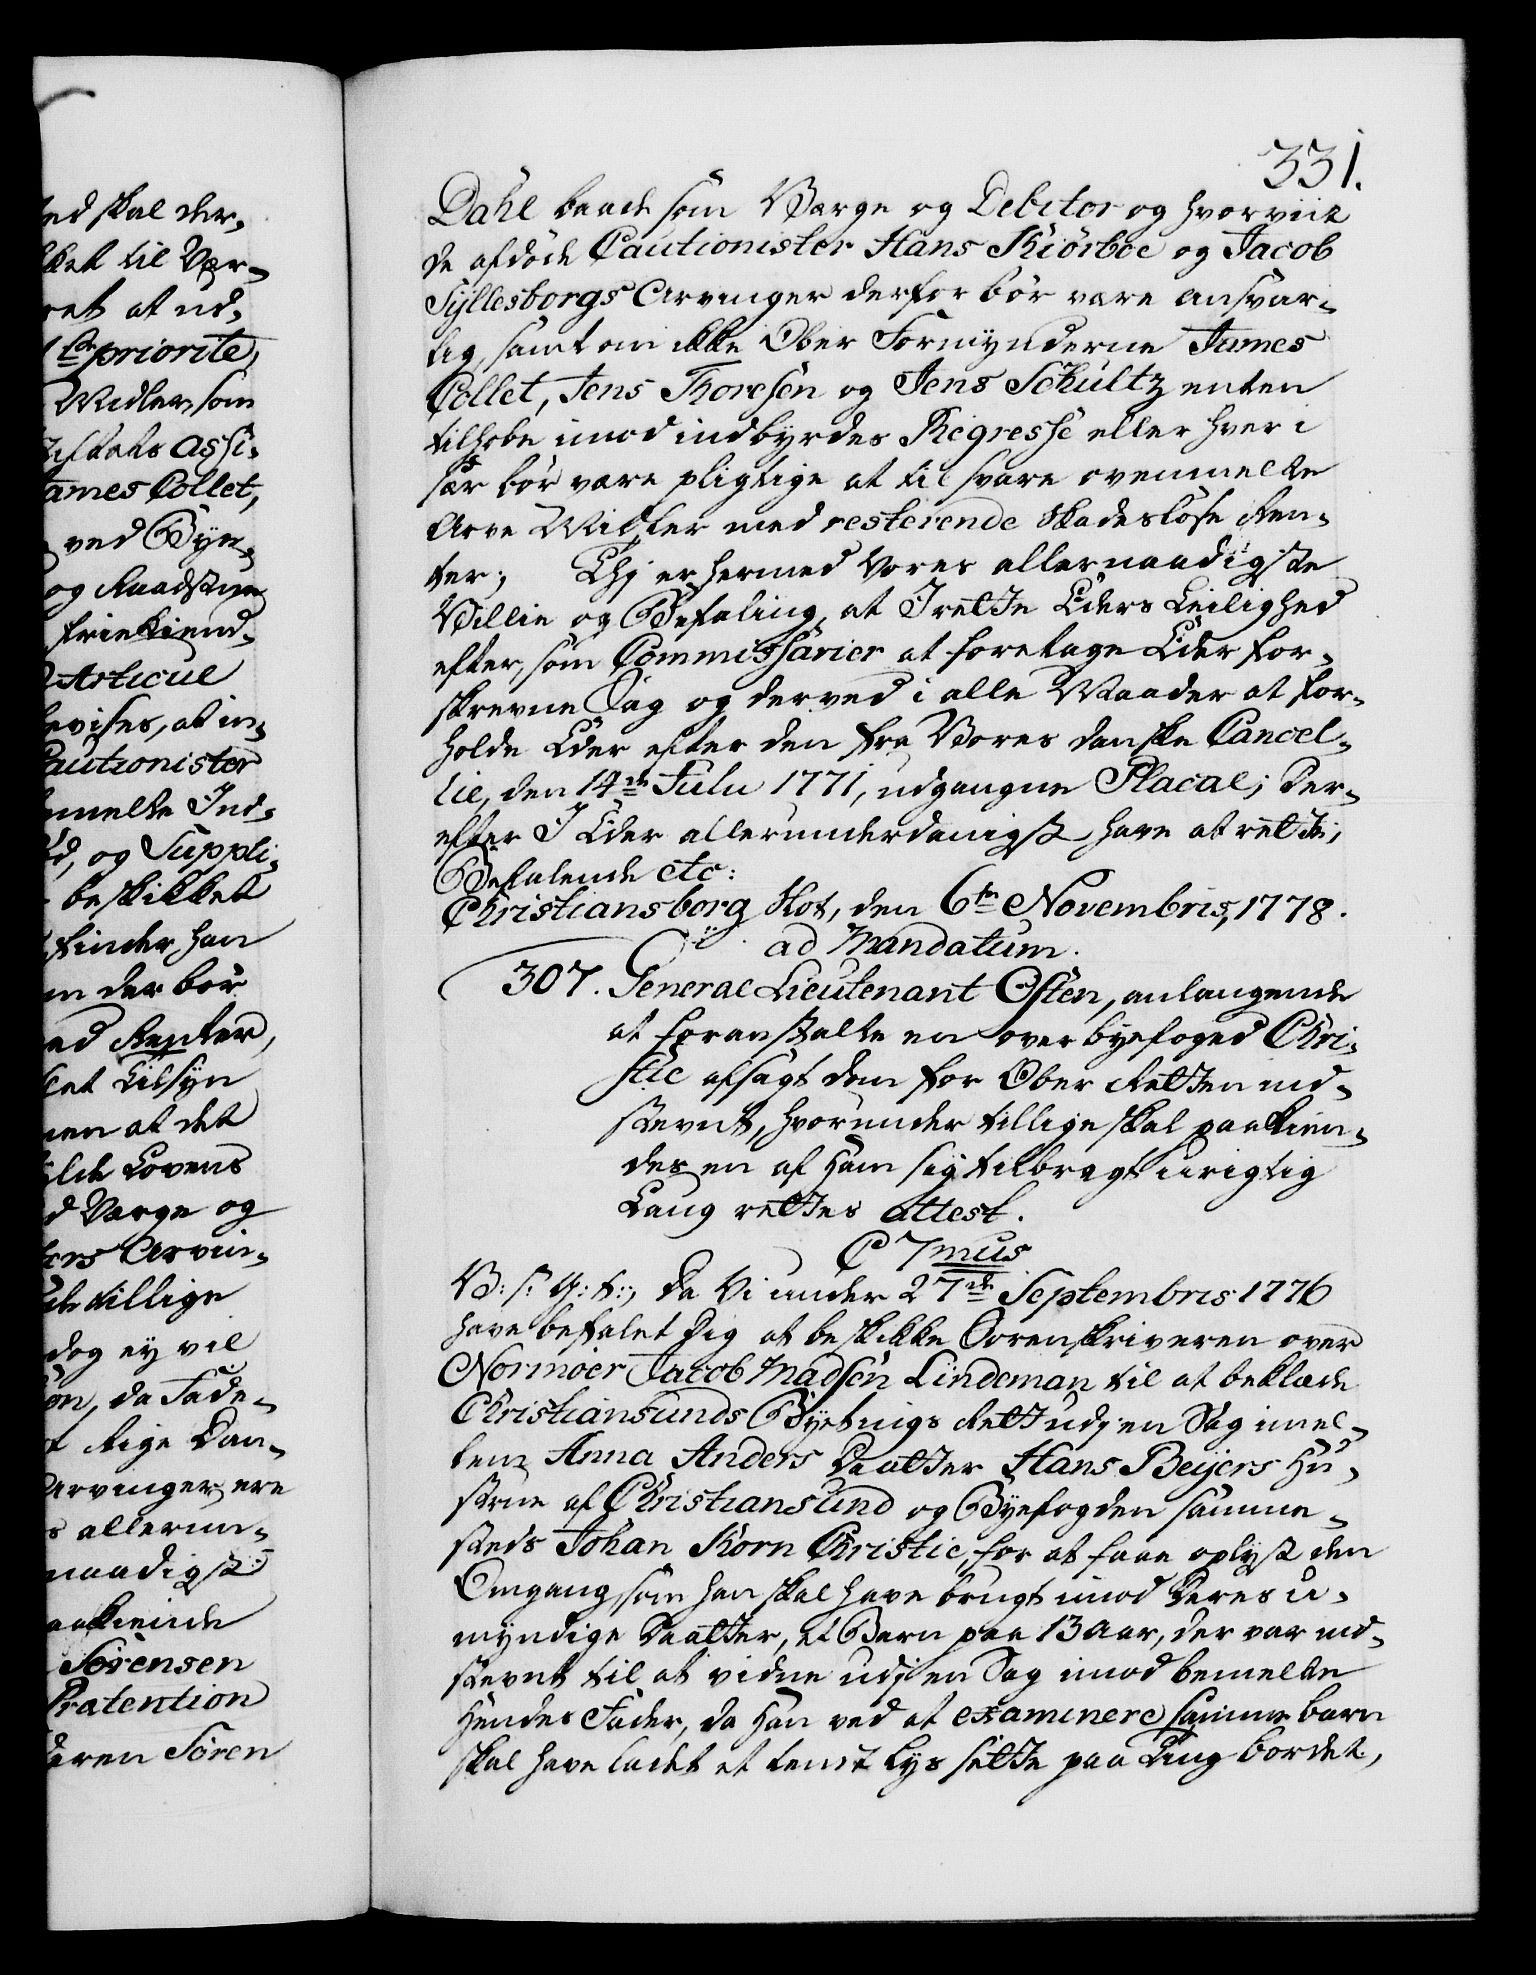 331.
Dahl baade som Værge og Debitor og hvorviit
de afdøde Cautionister Hans Kiørboe og Jacob
Syllesborgs Arvinger derfor bör være ansvar-
lig, samt om ikke Ober Formynderne James
Collet, Jens Thoresen og Jens Schultz enten
tilhobe imod indbyrdes Regresse eller hver i
sær bör være pligtige at til svare ovenmeldte
Arve Midler med resterende skadesløse Ren-
ter; Thi er hermed Vores allernaadigste
Villie og Befaling, at I rette Eders Leilighed
efter, som Commissarier at foretage Eder for-
skrevne Sag og derved i alle Maader at for-
holde Eder efter den fra Vores danske Cancel-
lie, den 14de Julii 1771, udgangne Placat; Der-
efter I Eder allerunderdanigst have at rette,
Befalende etc:
Christiansborg Slot, den 6te Novembris, 1778.
ad Mandatum.
307. General Lieutenant Osten, anlangende
at foranstalte en over byefoged Chri-
stie afsagt dom for Ober Retten ind-
stevnt, hvorunder tillige skal paakien-
des en af ham sig tilbragt urigtig
Laug rettes attest.
C 7mus
V: S: G: T:, Da Vi under 27de Septembris 1776
have befalet Dig at beskikke Sorenskriveren over
Normøer Jacob Madsen Lindeman til at beklæde
Christiansunds Byetings Rett udj en Sag imel-
lem Anna Anders Daatter Hans Beyers Hu-
strue af Christiansund og Byefogden samme-
steds Johan Korn Christie, for at faae oplyst den
Omgang, som han skal have brugt imod Deres u-
myndige Daatter, et Barn paa 13 Aar, der var ind-
stevnt til at vidne udj en Sag imod bemeldte
Hendes Fader, da han ved at examinere samme barn
skal have ladet et tændt Lys sette paa Ting bordet,